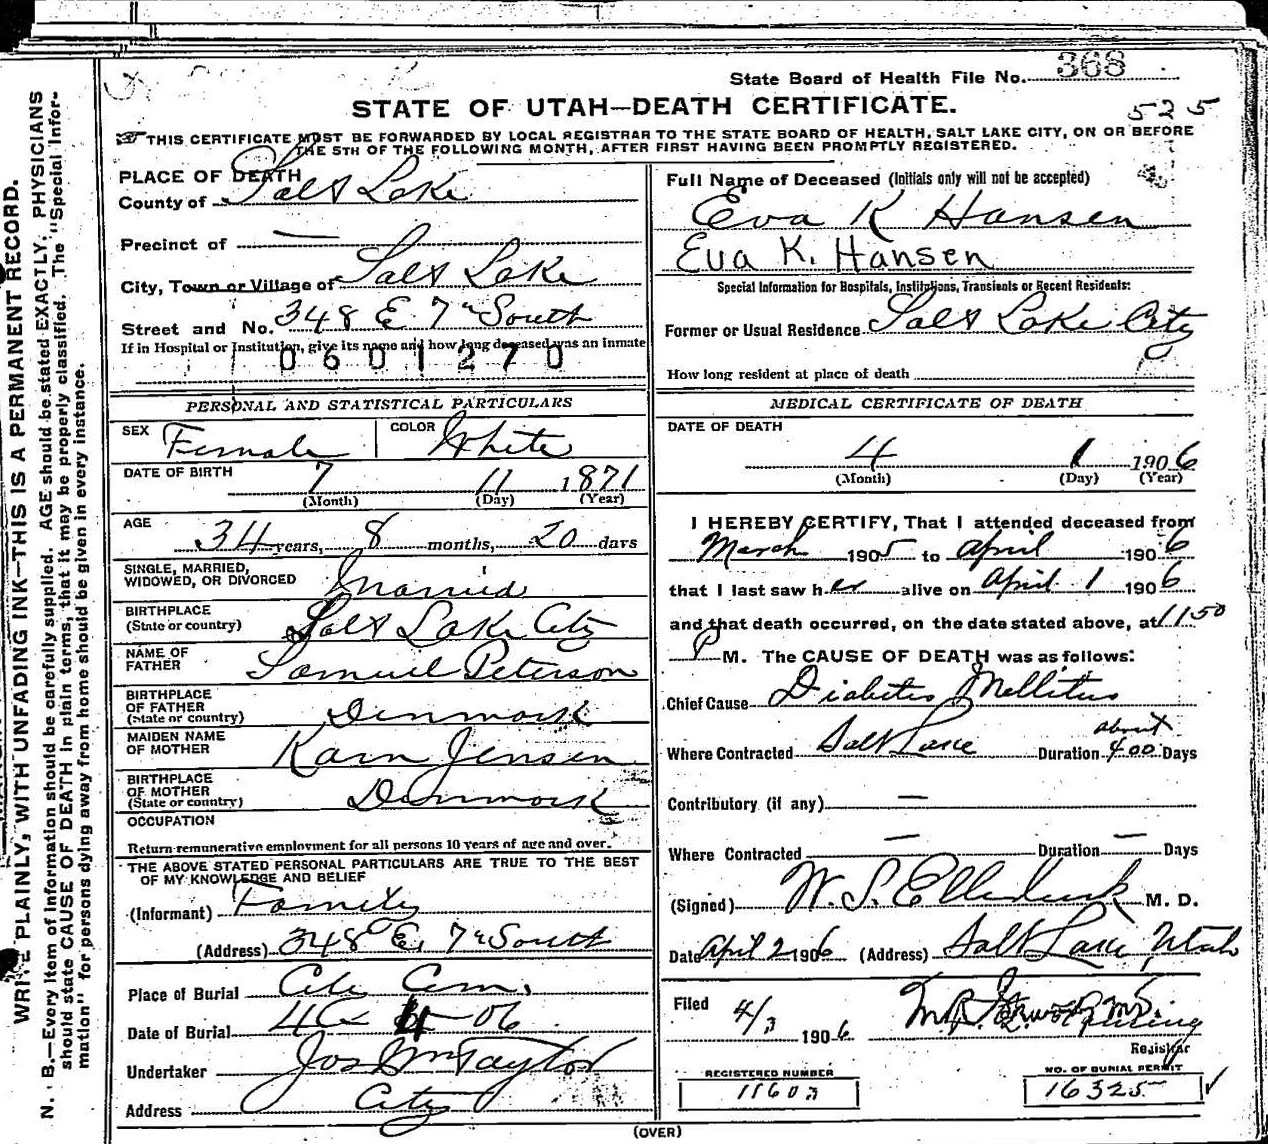 State Board of Health File No. 368
STATE OF UTAH—DEATH CERTIFICATE.
525
THIS CERTIFICATE MUST BE FORWARDED BY LOCAL REGISTRAR TO THE STATE BOARD OF HEALTH, SALT LAKE CITY, ON OR BEFORE
THE 5TH OF THE FOLLOWING MONTH, AFTER FIRST HAVING BEEN PROMPTLY REGISTERED.
WRITE PLAINLY, WITH UNFADING INK—THIS IS A PERMANENT RECORD.
N. B.—Every item of information should be carefully supplied. AGE should be stated EXACTLY. PHYSICIANS
should state CAUSE OF DEATH in plain terms, that it may be properly classified. The "Special Infor-
mation" for persons dying away from home should be given in every instance.
PLACE OF DEATH
County of Salt Lake
Precinct of —
City, Town or Village of Salt Lake
Street and No. 348 E 7th South
If in Hospital or Institution, give its name and how long deceased was an inmate
0601270
PERSONAL AND STATISTICAL PARTICULARS
SEX Female COLOR White
DATE OF BIRTH 7 11 1871
(Month) (Day) (Year)
AGE 34 years, 8 months, 20 days
SINGLE, MARRIED,
WIDOWED, OR DIVORCED Married
BIRTHPLACE
(State or country) Salt Lake City
NAME OF
FATHER Samuel Peterson
BIRTHPLACE
OF FATHER
(State or country) Denmark
MAIDEN NAME
OF MOTHER Karn Jensen
BIRTHPLACE
OF MOTHER
(State or country) Denmark
OCCUPATION
Return remunerative employment for all persons 10 years of age and over.
THE ABOVE STATED PERSONAL PARTICULARS ARE TRUE TO THE BEST
OF MY KNOWLEDGE AND BELIEF
(Informant) Family
(Address) 348 E. 7th South
Place of Burial City Cem.
Date of Burial 4 06
Undertaker Jos Wm Taylor
Address City
Full Name of Deceased (Initials only will not be accepted)
Eva K Hansen
Eva K. Hansen
Special Information for Hospitals, Institutions, Transients or Recent Residents:
Former or Usual Residence Salt Lake City
How long resident at place of death
MEDICAL CERTIFICATE OF DEATH
DATE OF DEATH
4 1 1906
(Month) (Day) (Year)
I HEREBY CERTIFY, That I attended deceased from
March 1905 to April 1906
that I last saw her alive on April 1 1906
and that death occurred, on the date stated above, at 11 50
P M. The CAUSE OF DEATH was as follows:
Chief Cause Diabetes Mellitus
Where Contracted Salt Lake Duration about 400 Days
Contributory (if any) —
Where Contracted — Duration — Days
(Signed) W. S. Ellerbeck M. D.
Date April 2 1906 (Address) Salt Lake, Utah
Filed 4/3 1906
Registrar
REGISTERED NUMBER
11603
NO. OF BURIAL PERMIT
16325
(OVER)